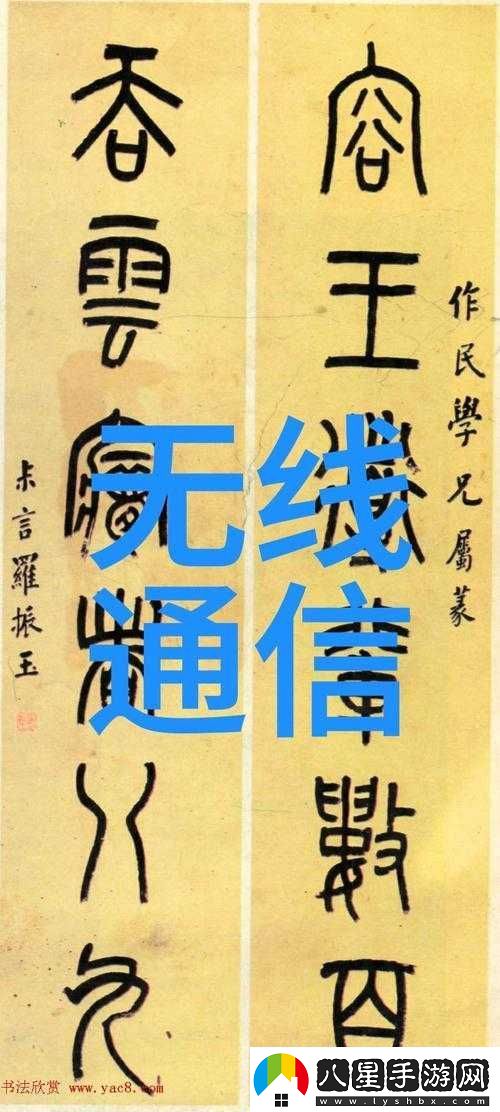 作民學兄屬篆
容王數百
吞雲八九
尗言羅振玉
无线
通信
书法欣赏 www.yac8.com
八星手游网
www.lyshbx.com